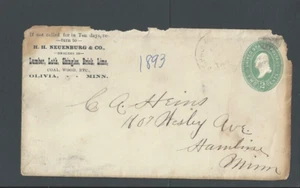 If not called for in Ten days, re-
turn to
H. H. NEUENBURG & CO.,
DEALERS IN
Lumber, Lath, Shingles, Brick, Lime,
COAL, WOOD, ETC.,
OLIVIA, MINN.
1893
C A Heins
1107 Wesley Ave
Hamline
Minn